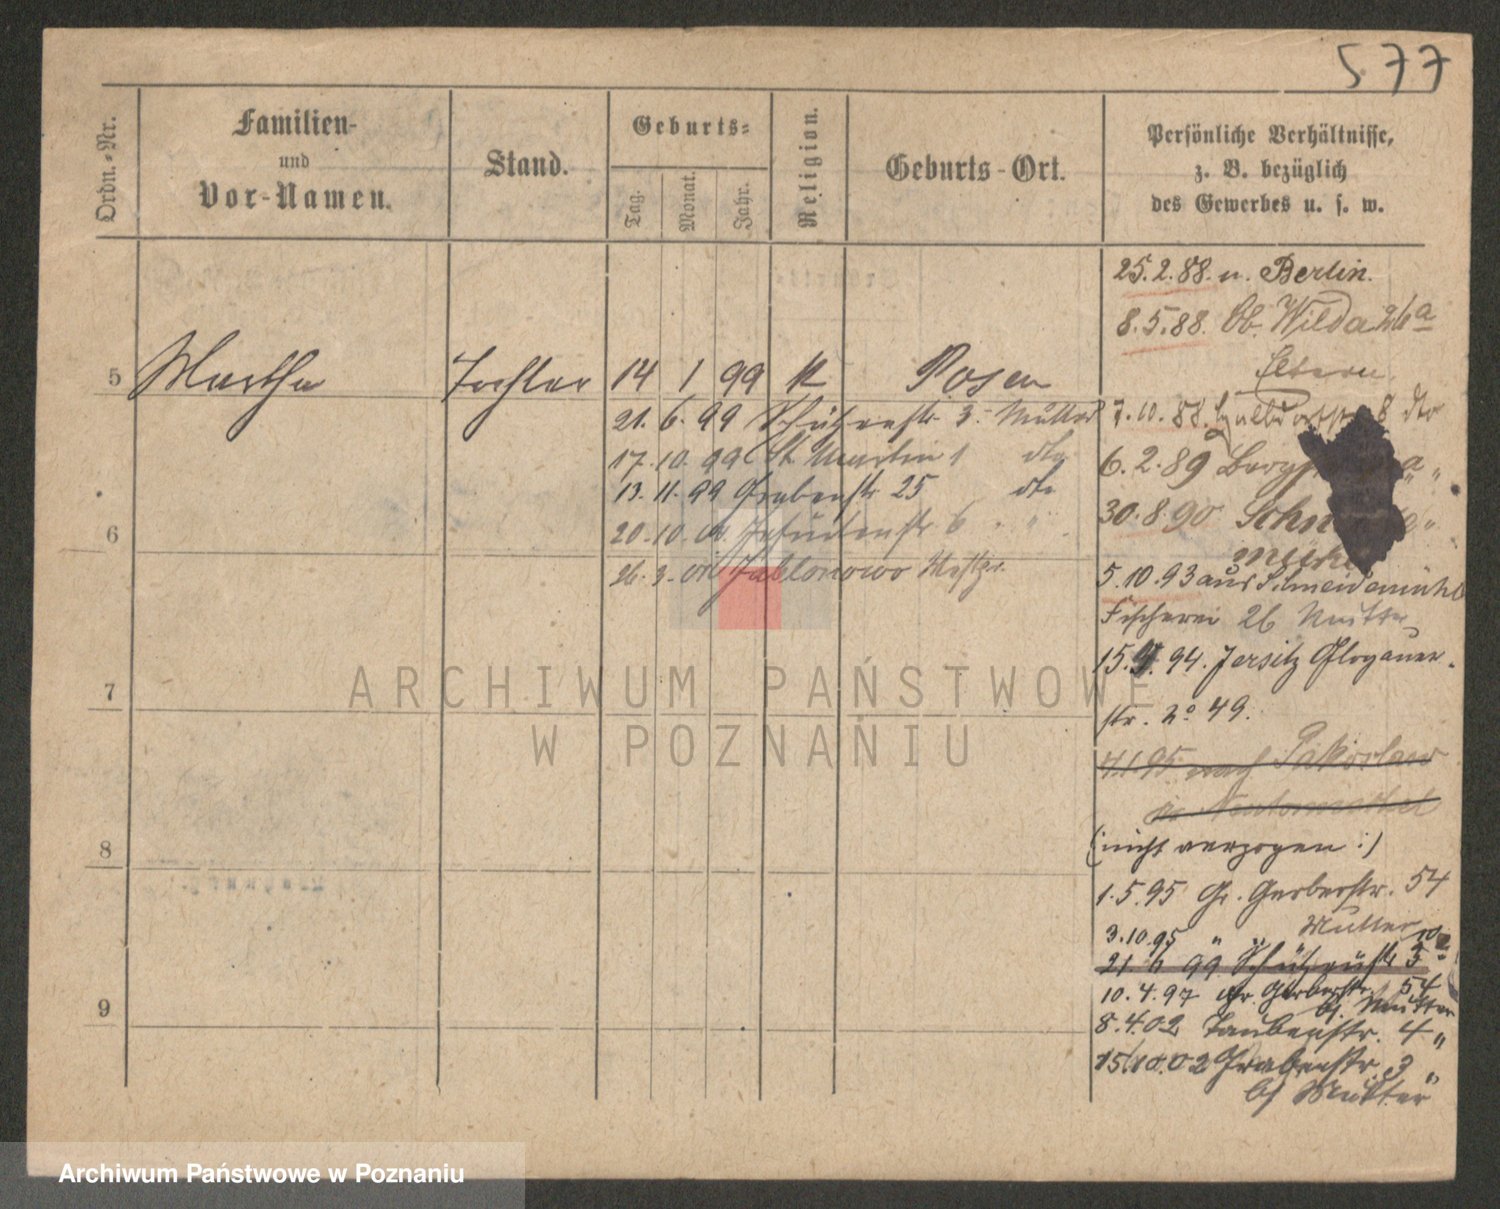 577
Ordn.-Nr.
Familien-
und
Vor-Namen.
Stand.
Geburts-
Tag.
Monat.
Jahr.
Religion.
Geburts-Ort.
Persönliche Verhältnisse,
z. B. bezüglich
des Gewerbes u. s. w.
5 Martha Tochter 14 1 99 K Posen
21. 6. 99 Schützenstr 3. Mutter
17. 10. 99 St Martin 1 dto
13. 11. 99 Grabenstr 25 dto
20. 10. Jesuitenstr 6 " "
26. 3. Jablonowo Westpr.
6
7
8
9
25. 2. 88. n. Berlin.
8. 5. 88. Ob. Wilda 26a
Eltern
7. 10. 88. 8 dto
6. 2. 89 a "
30. 8. 90 "
5. 10. 93 aus Schneidemühl
Fischerei 26 Mutter
15. 9. 94. Jersitz Glogauer-
str. No 49.
4.1.95 nach
(: nicht verzogen :)
1. 5. 95 Gr. Gerberstr. 54
Mutter
3. 10. 95 " "
21. 6 99 Schützenstr 3
10. 4. 97 Gr. Gerberstr. 54
bj. Mutter
8. 4. 02 Taubenstr. 4 "
15/10. 02 Grabenstr. 3 "
bj Mutter
ARCHIWUM PAŃSTWOWE
W POZNANIU
Archiwum Państwowe w Poznaniu